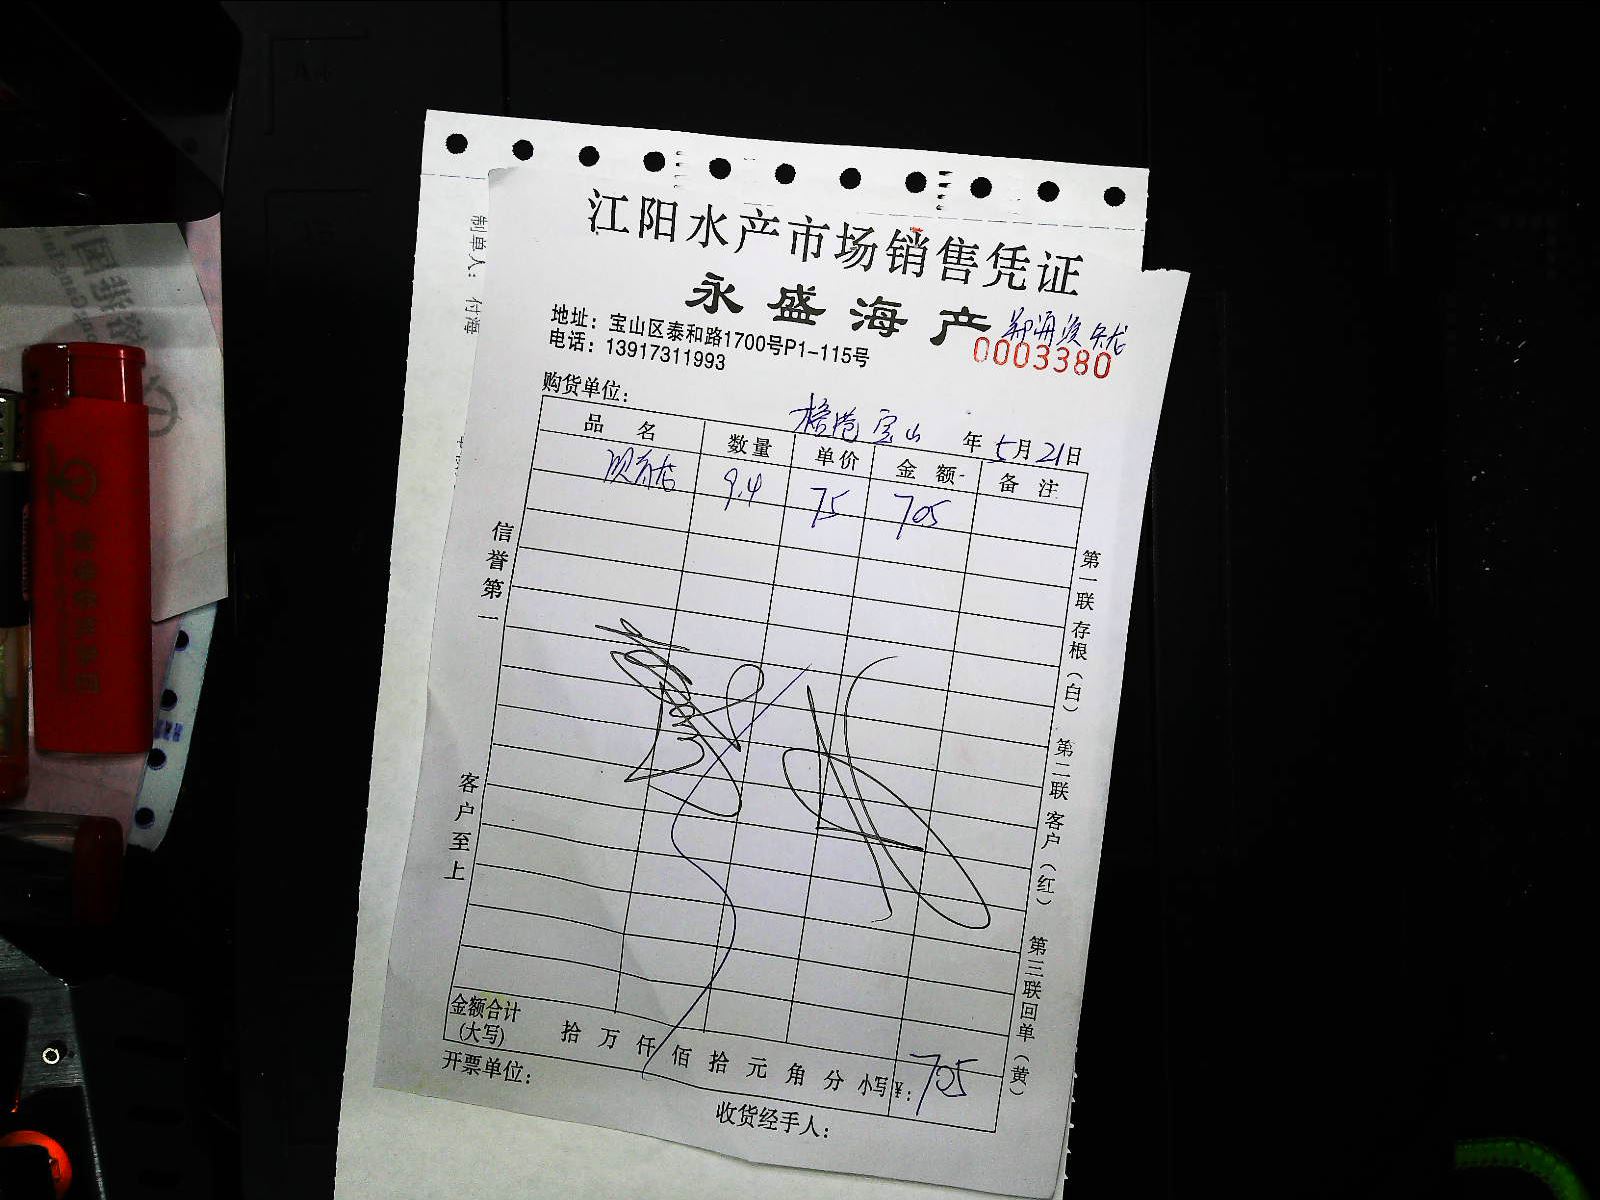 江阳水产市场销售凭证
永盛海产
地址：宝山区泰和路1700号P1-115号
电话：13917311993
0003380
购货单位：
宝山 年 5月 21日
品名 数量 单价 金额 备注
9.4 75 705
信誉第一
客户至上
第一联 存根（白） 第二联 客户（红） 第三联 回单（黄）
金额合计
(大写) 拾 万 仟 佰 拾 元 角 分 小写￥: 705
开票单位：
收货经手人：
制单人： 付海